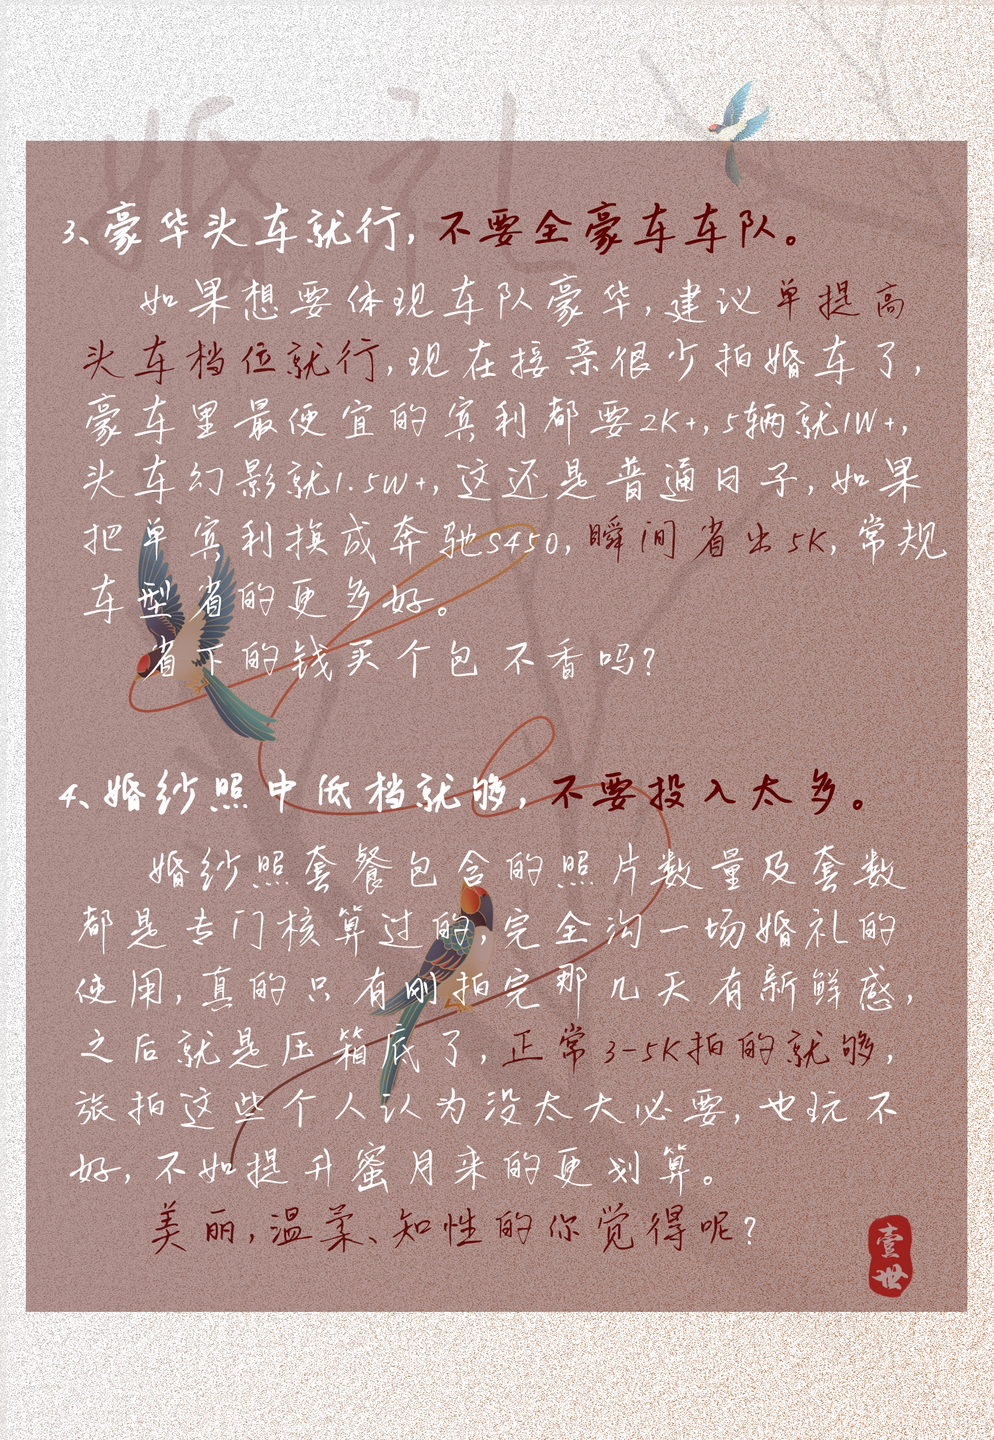 婚礼
3、豪华头车就行，不要全豪车车队。
如果想要体现车队豪华，建议单提高
头车档位就行，现在接亲很少拍婚车了，
豪车里最便宜的宾利都要2K+，5辆就1W+，
头车幻影就1.5W+，这还是普通日子，如果
把单宾利换成奔驰S450，瞬间省出5K，常规
车型省的更多好。
省下的钱买个包不香吗？
4、婚纱照中低档就够，不要投入太多。
婚纱照套餐包含的照片数量及套数
都是专门核算过的，完全沟一场婚礼的
使用，真的只有刚拍完那几天有新鲜感，
之后就是压箱底了，正常3-5K拍的就够，
旅拍这些个人认为没太大必要，也玩不
好，不如提升蜜月来的更划算。
美丽，温柔、知性的你觉得呢？
壹世